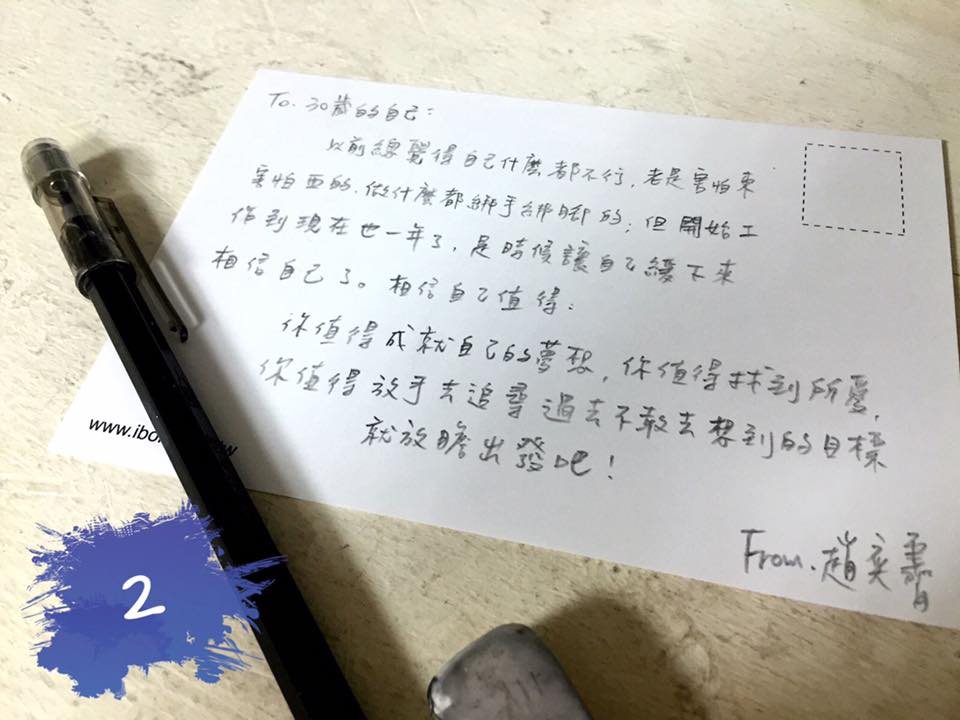 To. 30歲的自己：
以前總覺得自己什麼都不行，老是害怕東
害怕西的，做什麼都綁手綁腳的；但開始工
作到現在也一年了，是時候讓自己緩下來
相信自己了。相信自己值得：
你值得成就自己的夢想，你值得找到所愛，
你值得放手去追尋過去不敢去想到的目標
就放瞻出發吧！
From. 趙奕
www.ibo
2